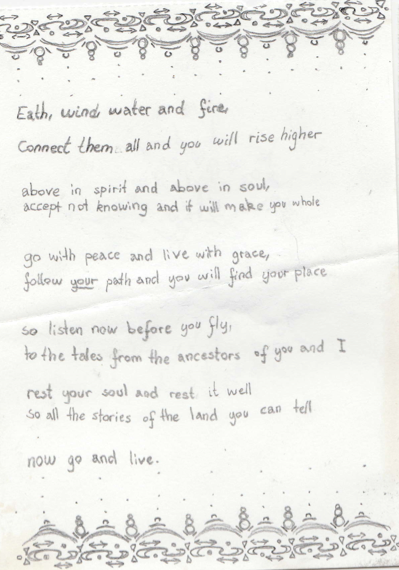 Eath, wind, water and fire,
Connect them all and you will rise higher
above in spirit and above in soul,
accept not knowing and it will make you whole
go with peace and live with grace,
follow your path and you will find your place
so listen now before you fly,
to the tales from the ancestors of you and I
rest your soul and rest it well
so all the stories of the land you can tell
now go and live.